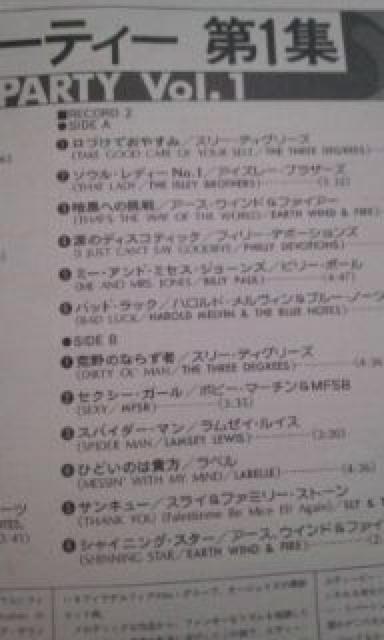 ーティー 第1集
PARTY Vol.1
■RECORD 2
●SIDE A
❶口づけておやすみ/スリー・ディグリーズ
(TAKE GOOD CARE OF YOUR SELF/THE THREE DEGREES)
❷ソウル・レディーNo.1/アイズレー・ブラザーズ
(THAT LADY/THE ISLEY BROTHERS)
❸暗黒への挑戦/アース・ウインド&ファイアー
(THAT'S THE WAY OF THE WORLD/EARTH WIND & FIRE)
❹涙のディスコティック/フィリー・デボーションズ
(I JUST CAN'T SAY GOODBYE/PHILLY DEVOTIONS)
❺ミー・アンド・ミセス・ジョーンズ/ビリー・ポール
(ME AND MRS. JONES/BILLY PAUL)……(4:47)
❻バッド・ラック/ハロルド・メルヴィン&ブルー・ノーツ
(BAD LUCK/HAROLD MELVIN & THE BLUE NOTES)
●SIDE B
❶荒野のならず者/スリー・ディグリーズ
(DIRTY OL' MAN/THE THREE DEGREES)
❷セクシー・ガール/ボビー・マーチン&MFSB
(SEXY/MFSB)……(3:35)
❸スパイダー・マン/ラムゼイ・ルイス
(SPIDER MAN/LAMSEY LEWIS)……(3:20)
❹ひどいのは貴方/ラベル
(MESSIN' WITH MY MIND/LABELLE)……(4:36)
❺サンキュー/スライ&ファミリー・ストーン
(THANK YOU (Falettinme Be Mice Elf Again)/SLY &
❻シャイニング・スター/アース、ウインド&ファイ
(SHINNING STAR/EARTH WIND & FIRE)
ーツ
3:41)